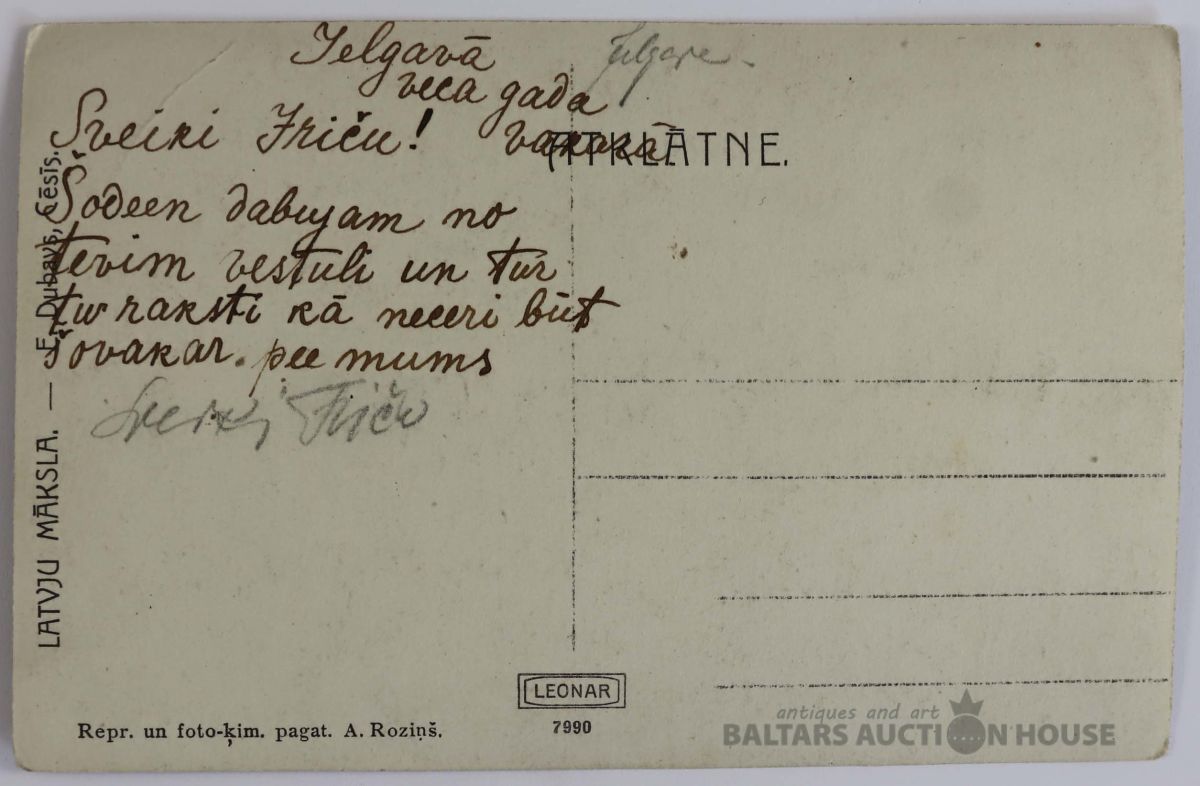 Jelgavā
Jelgava.
veca gada
Sveiki Friču! vakarā
ATKLĀTNE.
Šodeen dabujam no
tevim vestuli un tur
tu raksti kā neceri būt
šovakar. pee mums
Sveiki Friču
LATVJU MĀKSLA. — E. Dubavs, Cēsīs.
LEONAR
7990
Repr. un foto-ķim. pagat. A. Roziņš.
antiques and art
BALTARS AUCTION HOUSE